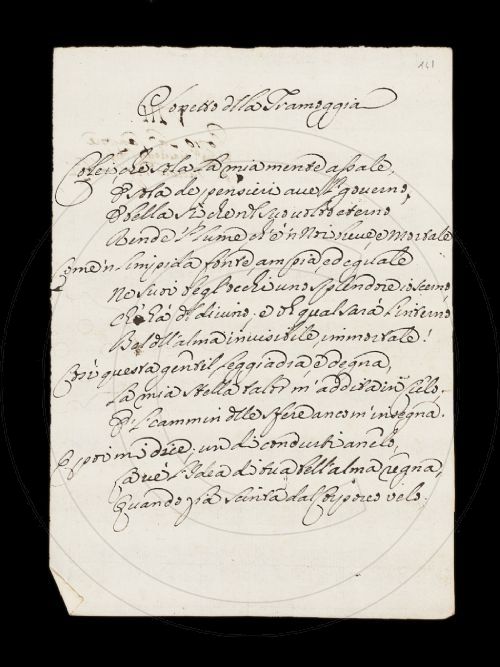 141
Della Tramoggia
Colei, che sola la mia mente assale,
E sola de' pensieri ave 'l governo,
E bella sì che nel suo volto eterno
Rende 'l lume ch'è 'n Noi lieve, e mortale
Come 'n limpida fonte, ampia, ed eguale
Ne' suoi begl'occhi uno splendore io scerno,
ch'hà del divino. e qual sarà l'interno
Bel dell'alma invisibile, immortale!
Così questa gentil leggiadra, e degna,
La mia stella talor m'addita in Cielo,
E 'l cammin delle sfere ancor m'insegna.
E poi mi dice: un dì condurti anelo,
Là ve l'Idea di tua bell'alma regna,
Quando sia scinta dal Corporeo velo.